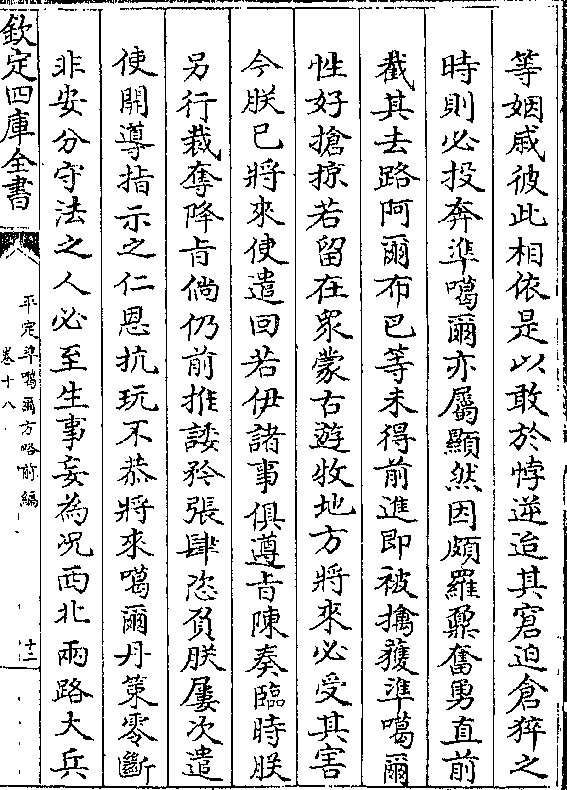 等姻戚彼此相依是以敢於悖逆迨其窘迫倉猝之
時則必投奔準噶爾亦屬顯然因頗羅鼐奮勇直前
截其去路阿爾布巴等未得前進即被擒獲準噶爾
性好搶掠若留在眾蒙古遊牧地方將來必受其害
今朕已將來使遣回若伊諸事俱遵旨陳奏臨時朕
另行裁奪降旨倘仍前推諉矜張肆恣負朕屢次遣
使開導指示之仁恩抗玩不恭將來噶爾丹策零斷
非安分守法之人必至生事妄為況西北兩路大兵
欽定四庫全書
平定準噶爾方略前編
卷十八
十二